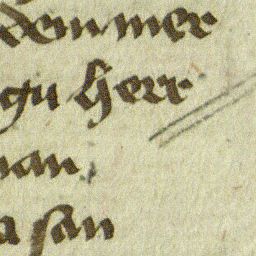 dem mer
gu herr
nan
a san